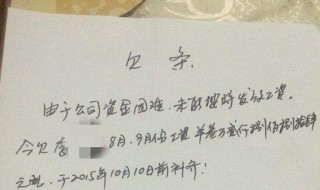 欠条
由于公司资金困难，未能按时发放工资。
今欠李 8月、9月份工资 万 仟捌佰捌拾肆
元整，于2015年10月10日前补齐！